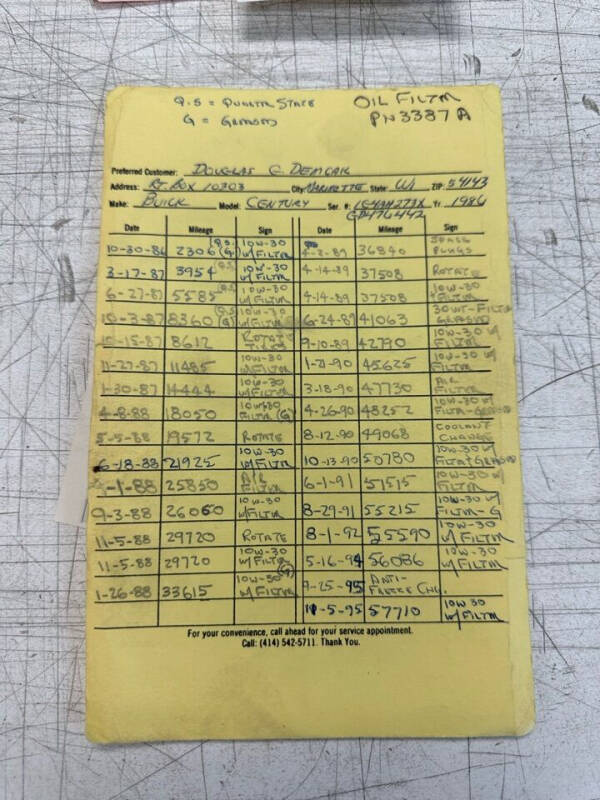 Q.S = QUAKER STATE
OIL FILTER
G = GREASED
PN 3387A
Preferred Customer: DOUGLAS G DEMCAK
Address: RT. BOX 1030J City: MARINETTE State: WI ZIP: 54143
Make: BUICK Model: CENTURY Ser. #: Yr. 1986
GD476442
Date Mileage Sign Date Mileage Sign
10-30-86 2306 (Q.S.) (G) 10W-30 W/FILTR 4-2-89 36840 PLUGS
3-17-87 3954 (Q.S) 10W-30 W/FILTR 4-14-89 37508 ROTATE
6-27-87 5585 (Q.S) 10W-30 W/FILTR 4-14-89 37508 10W-30 FILTR
10-3-87 8360 (Q.S) (G) 10W-30 W/FILTR 6-24-89 41063 30WT-FILTR GREASED
10-15-87 8612 ROTATE TIRES 9-10-89 42790 10W-30 W/ FILTR
11-27-87 11485 10W-30 W/FILTR 1-21-90 45625 10W-30 W/ FILTR
1-30-87 14444 10W-30 W/FILTR 3-18-90 47730 AIR FILTR
4-8-88 18050 10W-30 FILTR (G) 4-26-90 48252 10W-30 W/ FILTR-GREASED
5-5-88 19572 ROTATE 8-12-90 49068 COOLANT CHANGE
6-18-88 21925 10W-30 W/FILTR 10-13-90 50780 10W-30 W/ FILTR+GREASED
-1-88 25850 AIR FILTR 6-1-91 51515 10W-30 W/ FILTR
9-3-88 26060 10W-30 W/FILTR 8-29-91 55215 10W-30 W/ FILTR-G
11-5-88 29720 ROTATE 8-1-92 55590 10W-30 W/FILTR
11-5-88 29720 10W-30 W/FILTR (G) 5-16-94 56086 10W-30 W/FILTR
1-26-88 33615 10W-30 W/FILTR 9-25-95 ANTI-FREEZE CHG.
11-5-95 57710 10W30 W/FILTR
For your convenience, call ahead for your service appointment.
Call: (414) 542-5711. Thank You.